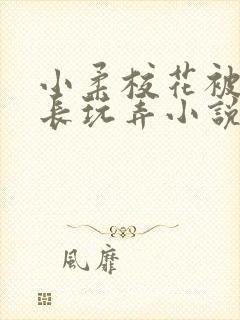 小柔校花被
長玩弄小說
風靡